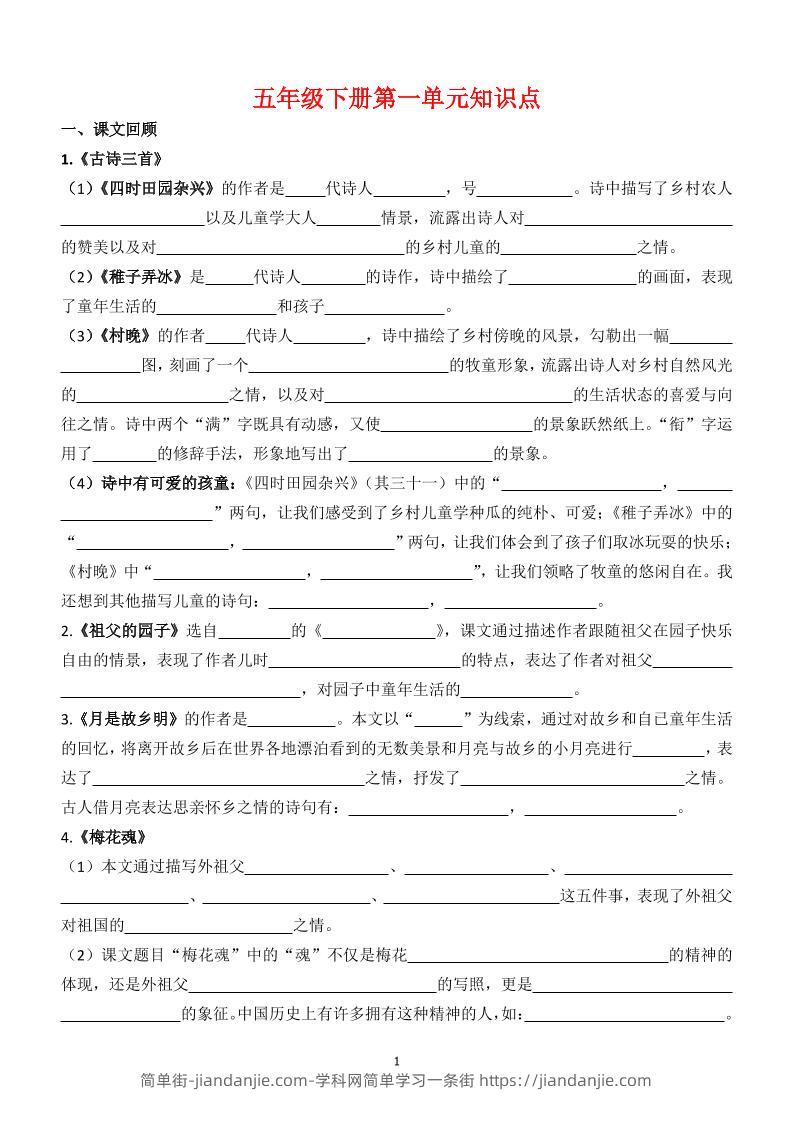 五年级下册第一单元知识点
一、课文回顾
1.《古诗三首》
（1）《四时田园杂兴》的作者是_____代诗人_________，号____________。诗中描写了乡村农人
__________________以及儿童学大人________情景，流露出诗人对__________________________
的赞美以及对_______________________________的乡村儿童的_________________之情。
（2）《稚子弄冰》是______代诗人________的诗作，诗中描绘了________________的画面，表现
了童年生活的_______________和孩子_______________。
（3）《村晚》的作者_____代诗人_________，诗中描绘了乡村傍晚的风景，勾勒出一幅________
__________图，刻画了一个_________________________的牧童形象，流露出诗人对乡村自然风光
的___________________之情，以及对_______________________________的生活状态的喜爱与向
往之情。诗中两个“满”字既具有动感，又使___________________的景象跃然纸上。“衔”字运
用了________的修辞手法，形象地写出了__________________的景象。
（4）诗中有可爱的孩童：《四时田园杂兴》（其三十一）中的“____________________，_______
___________________”两句，让我们感受到了乡村儿童学种瓜的纯朴、可爱；《稚子弄冰》中的
“___________________，___________________”两句，让我们体会到了孩子们取冰玩耍的快乐；
《村晚》中“___________________，___________________”，让我们领略了牧童的悠闲自在。我
还想到其他描写儿童的诗句：____________________，___________________。
2.《祖父的园子》选自_________的《______________》，课文通过描述作者跟随祖父在园子快乐
自由的情景，表现了作者儿时________________________的特点，表达了作者对祖父__________
______________________________，对园子中童年生活的______________。
3.《月是故乡明》的作者是___________。本文以“______”为线索，通过对故乡和自己童年生活
的回忆，将离开故乡后在世界各地漂泊看到的无数美景和月亮与故乡的小月亮进行_________，表
达了__________________________________之情，抒发了____________________________之情。
古人借月亮表达思亲怀乡之情的诗句有：____________________，___________________。
4.《梅花魂》
（1）本文通过描写外祖父__________________、__________________、_____________________
________________、_____________________、______________________这五件事，表现了外祖父
对祖国的_____________________之情。
（2）课文题目“梅花魂”中的“魂”不仅是梅花________________________________的精神的
体现，还是外祖父_______________________________的写照，更是_________________________
_______________的象征。中国历史上有许多拥有这种精神的人，如：_________________________。
1
简单街-jiandanjie.com-学科网简单学习一条街 https://jiandanjie.com